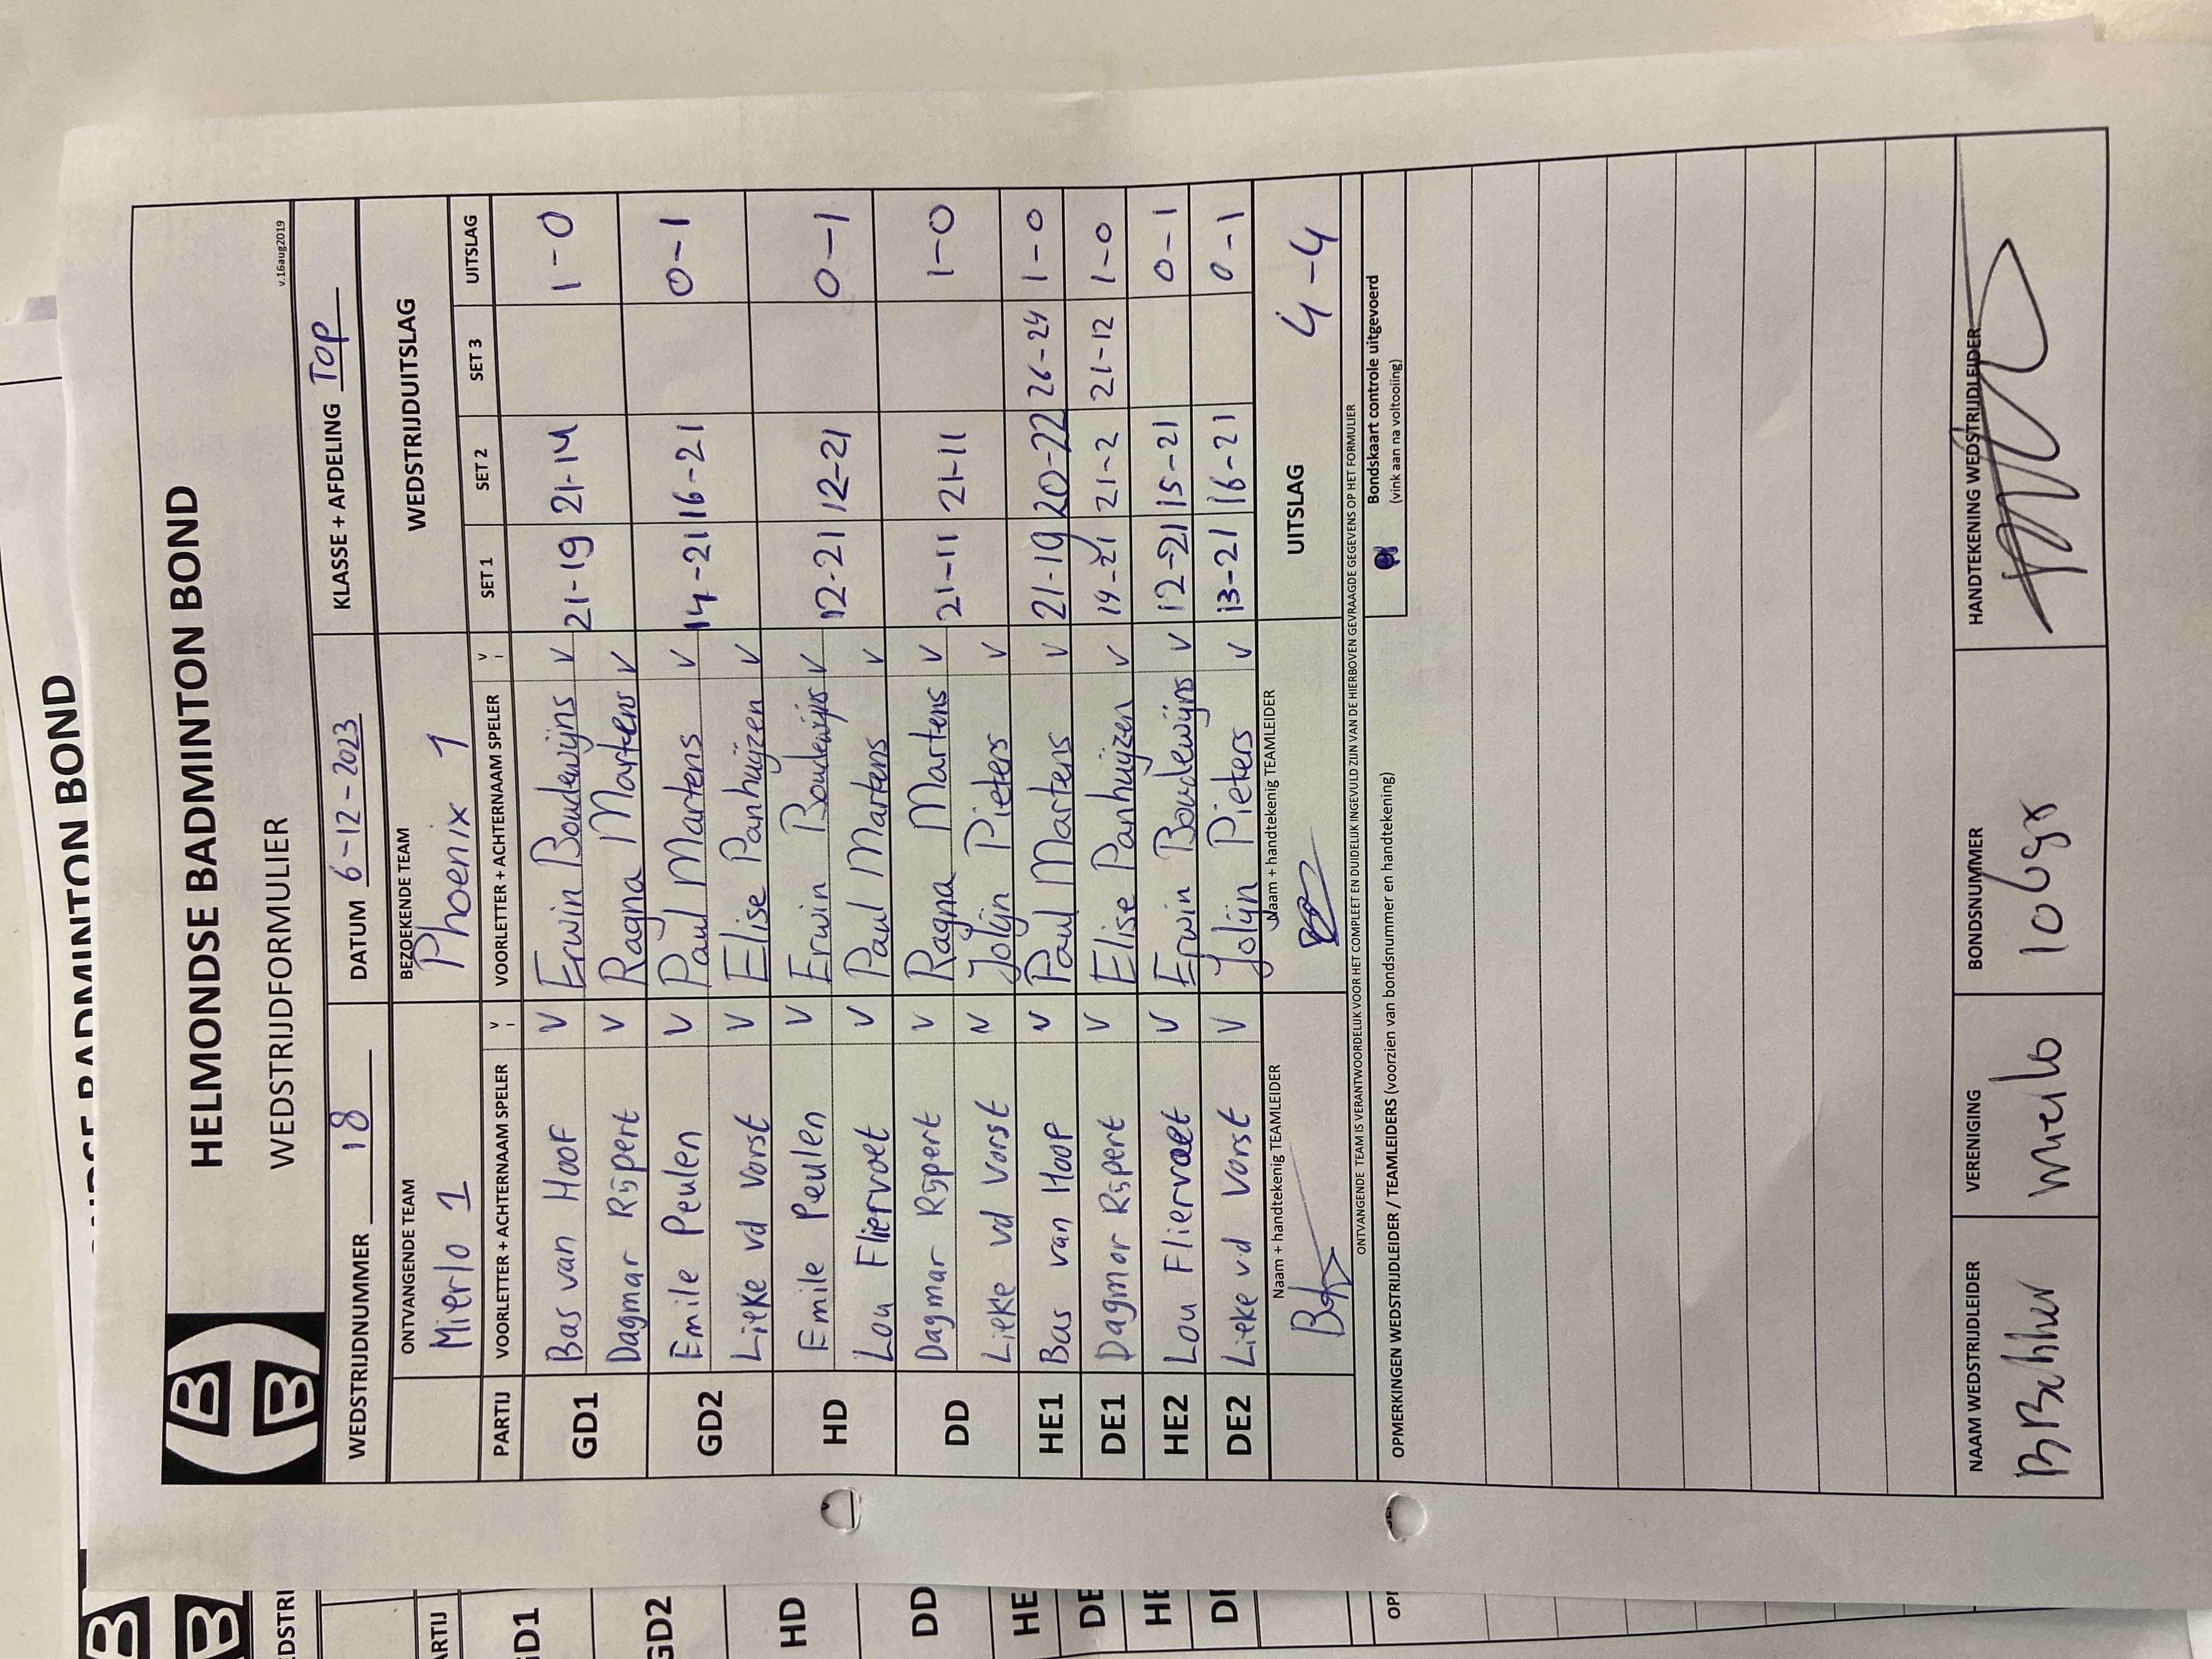 HELMONDSE BADMINTON BOND
WEDSTRIJDFORMULIER
v.16aug2019
WEDSTRIJDNUMMER 18 DATUM 6-12-2023 KLASSE + AFDELING Top
ONTVANGENDE TEAM BEZOEKENDE TEAM WEDSTRIJDUITSLAG
Mierlo 1 Phoenix 1
PARTIJ VOORLETTER + ACHTERNAAM SPELER V VOORLETTER + ACHTERNAAM SPELER V SET 1 SET 2 SET 3 UITSLAG
GD1 Bas van Hoof V Erwin Boudewijns V 21-19 21-14 1-0
Dagmar Rijpert V Ragna Martens V
GD2 Emile Peulen V Paul Martens V 14-21 16-21 0-1
Lieke vd Vorst V Elise Panhuijzen V
HD Emile Peulen V Erwin Boudewijns V 12-21 12-21 0-1
Lou Fliervoet V Paul Martens V
DD Dagmar Rijpert V Ragna Martens V 21-11 21-11 1-0
Lieke vd Vorst V Jolijn Pieters V
HE1 Bas van Hoof V Paul Martens V 21-19 20-22 26-24 1-0
DE1 Dagmar Rijpert V Elise Panhuijzen V 14-21 21-2 21-12 1-0
HE2 Lou Fliervoet V Erwin Boudewijns V 12-21 15-21 0-1
DE2 Lieke vd Vorst V Jolijn Pieters V 13-21 16-21 0-1
Naam + handtekenig TEAMLEIDER Naam + handtekenig TEAMLEIDER UITSLAG 4-4
ONTVANGENDE TEAM IS VERANTWOORDELIJK VOOR HET COMPLEET EN DUIDELIJK INGEVULD ZIJN VAN DE HIERBOVEN GEVRAAGDE GEGEVENS OP HET FORMULIER
OPMERKINGEN WEDSTRIJDLEIDER / TEAMLEIDERS (voorzien van bondsnummer en handtekening)
Bondskaart controle uitgevoerd
(vink aan na voltooiing)
NAAM WEDSTRIJDLEIDER VERENIGING BONDSNUMMER HANDTEKENING WEDSTRIJDLEIDER
Mierlo
BADMINTON BOND
GD1
GD2
HD
DD
HE
DE
HE